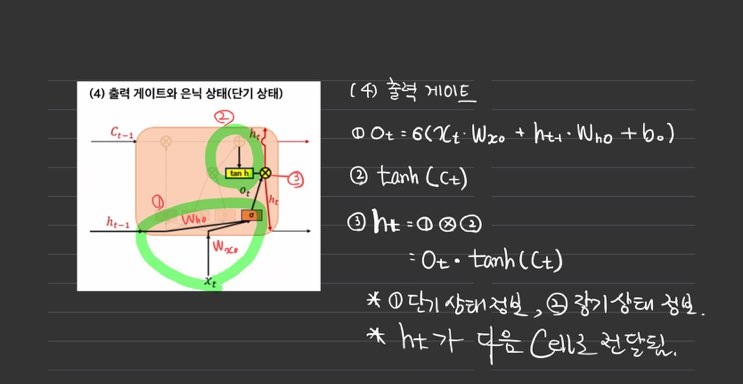 (4) 출력 게이트와 은닉 상태(단기 상태)
②
C_{t-1}
h_t
tan h
③
O_t
h_t
①
σ
h_{t-1}
W_{ho}
W_{xo}
x_t
(4) 출력 게이트
① O_t = 6(x_t · W_{xo} + h_{t-1} · W_{ho} + b_o)
② tanh(C_t)
③ h_t = ① ⊗ ②
= O_t · tanh(C_t)
* ① 단기 상태 정보, ② 장기 상태 정보.
* h_t가 다음 Cell로 전달됨.